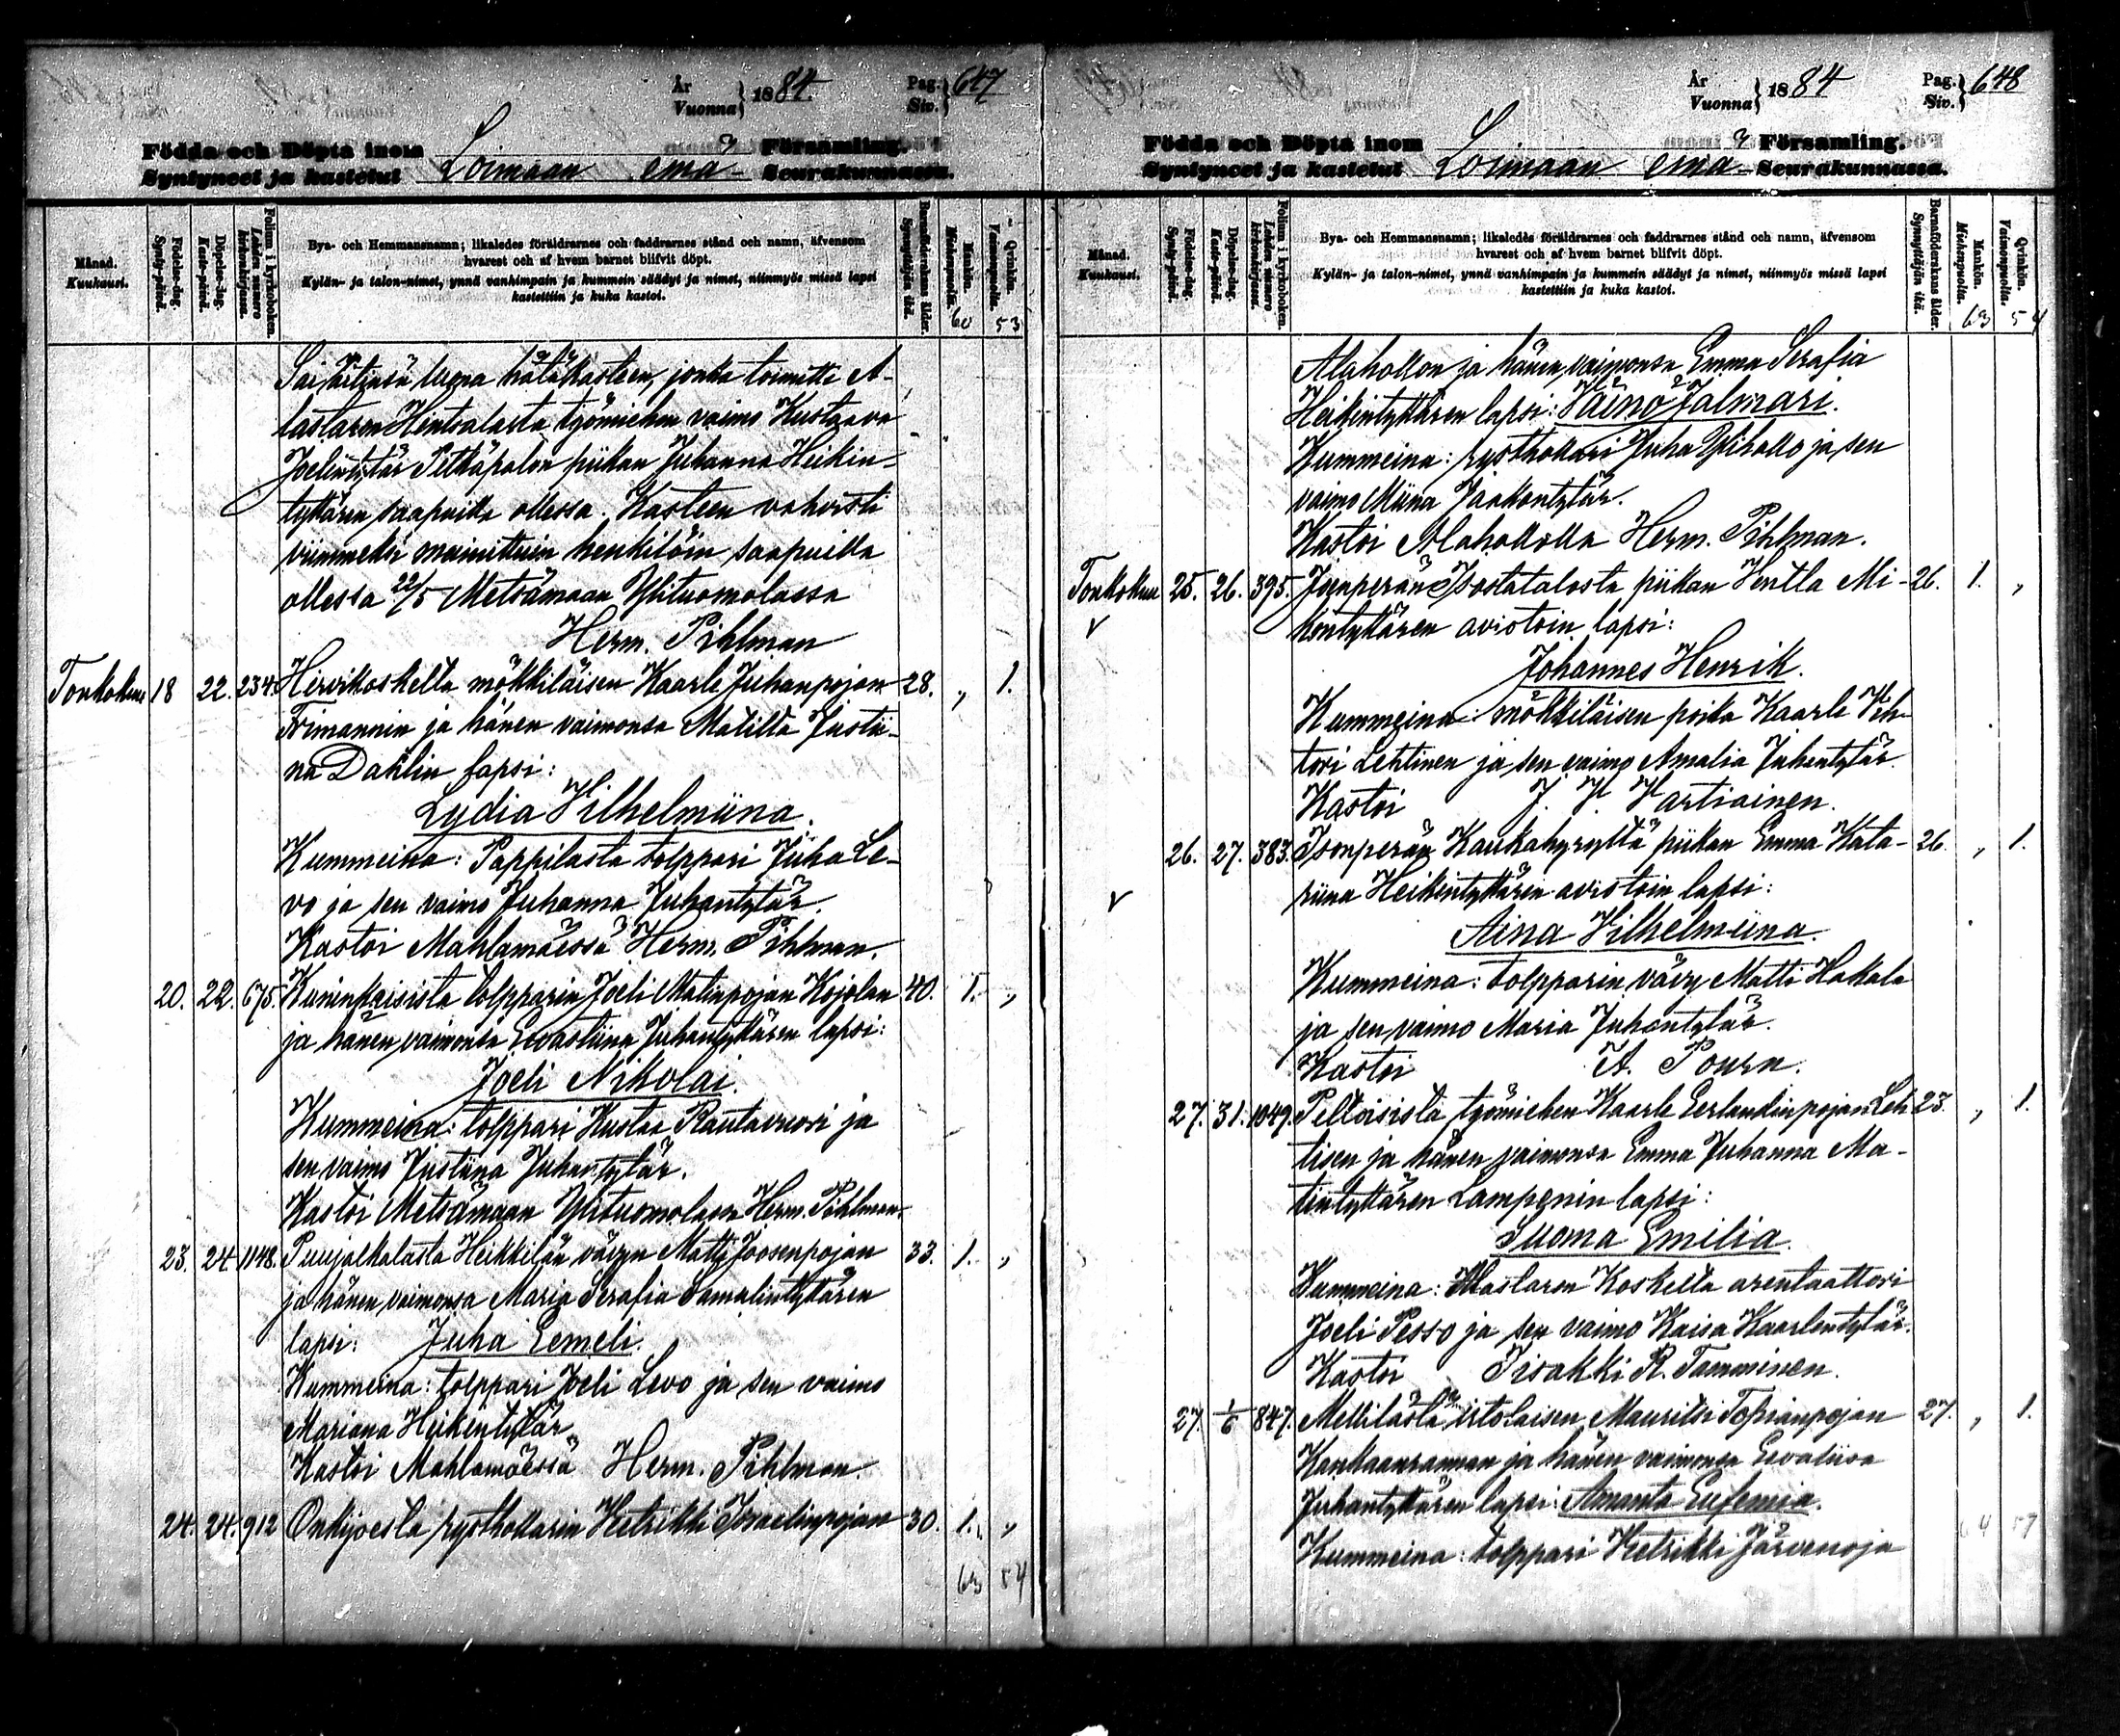 År Vuonna } 1884. Pag. Siv. } 647
Födda och Döpta inom Församling.
Syntyneet ja kastetut Loimaan emä- Seurakunnassa.
Månad. Kuukausi.
Födelse-dag. Synty-päivä.
Döpelse-dag. Kaste-päivä.
Folium i kyrkoboken. Lehden numero kirkonkirjassa.
Bya- och Hemmansnamn; likaledes föräldrarnes och faddrarnes stånd och namn, äfvensom
hvarest och af hvem barnet blifvit döpt.
Kylän- ja talon-nimet, ynnä vanhimpain ja kummein säädyt ja nimet, niinmyös missä lapsi
kastettiin ja kuka kastoi.
Barnföderskans ålder. Synnyttäjän ikä.
Mankön. Miehenpuolia. 60
Qvinkön. Vaimonpuolia. 53
Sai äitinsä luona hätäkasteen, jonka toimitti A-
lastaron Hintsalasta työmiehen vaimo Kustaava
Joelintytär Pitkäpalon piikan Juhanna Heikin-
tyttären saapuilla ollessa. Kasteen vahvisti
viimmeksi mainittuin henkilöin saapuilla
ollessa 22/5 Metsämaan Ylituomolassa
Herm. Pihlman
Toukokuu 18 22. 234. Hirvikoskelta mökkiläisen Kaarle Juhanpojan 28. „ 1.
Frimannin ja hänen vaimonsa Matilta Justii-
na Dahlin lapsi:
Lydia Vilhelmiina.
Kummeina: Pappilasta tolppari Juha Le-
vo ja sen vaimo Juhanna Juhantytär.
Kastoi Mahlamäessä Herm. Pihlman.
20. 22. 675. Kuninkaisista tolpparin Joeli Matinpojan Kojolan 40. 1. „
ja hänen vaimonsa Eevastiina Juhantyttären lapsi:
Joeli Nikolai.
Kummeina: tolppari Kustaa Rautavuori ja
sen vaimo Justiina Juhantytär.
Kastoi Metsämaan Ylituomolassa Herm. Pihlman.
23. 24. 1148. Puujalkalasta Heikkilän vävyn Matti Joosenpojan 33. 1. „
ja hänen vaimonsa Maria Serafia Samulintyttären
lapsi: Juha Eemeli.
Kummeina: tolppari Joeli Levo ja sen vaimo
Mariana Heikintytär
Kastoi Mahlamäessä Herm. Pihlman.
24. 24. 912 Onkijoesta rysthollarin Hetrikki Israelinpojan 30. 1. „
63 54
År Vuonna } 1884 Pag. Siv. } 648
Födda och Döpta inom Församling.
Syntyneet ja kastetut Loimaan emä- Seurakunnassa.
Månad. Kuukausi.
Födelse-dag. Synty-päivä.
Döpelse-dag. Kaste-päivä.
Folium i kyrkoboken. Lehden numero kirkonkirjassa.
Bya- och Hemmansnamn; likaledes föräldrarnes och faddrarnes stånd och namn, äfvensom
hvarest och af hvem barnet blifvit döpt.
Kylän- ja talon-nimet, ynnä vanhimpain ja kummein säädyt ja nimet, niinmyös missä lapsi
kastettiin ja kuka kastoi.
Barnföderskans ålder. Synnyttäjän ikä.
Mankön. Miehenpuolia. 63
Qvinkön. Vaimonpuolia. 54
Alahollon ja hänen vaimonsa Emma Serafia
Heikintyttären lapsi: Väinö Jalmari.
Kummeina: rysthollari Juha Ylihollo ja sen
vaimo Miina Jaakontytär.
Kastoi Alahollolla Herm. Pihlman.
Toukokuu 25. 26. 395. Joenperän Isostatalosta piikan Hentla Mi- 26. 1. „
kontyttären avistoin lapsi:
Johannes Henrik.
Kummeina: mökkiläisen poika Kaarle Vih-
tori Lehtinen ja sen vaimo Amalia Juhantytär.
Kastoi J. H. Hartiainen.
26. 27. 383. Isonperän Kaukahyryltä piikan Emma Kata- 26. „ 1.
riina Heikintyttären avistoin lapsi:
Aina Vilhelmiina.
Kummeina: tolpparin vävy Matti Hakala
ja sen vaimo Maria Juhantytär.
Kastoi A. Pourn.
27. 31. 1049. Peltoisista työmiehen Kaarle Eerlandinpojan Leh- 23. „ 1.
tisen ja hänen vaimonsa Emma Juhanna Ma-
tintyttären Lampenin lapsi:
Suoma Emilia.
Kummeina: Alastaron Koskelta arentaattori
Joeli Pesso ja sen vaimo Kaisa Kaarlentytär.
Kastoi Iisakki R. Tamminen.
27. 1/6 847. Mellilästä itolaisen Mauritsi Topianpojan 27. „ 1.
Kankaanrannan ja hänen vaimonsa Eevaliisa
Juhantyttären lapsi: Amanta Eufemia.
Kummeina: tolppari Hetrikki Järvenoja
64 57